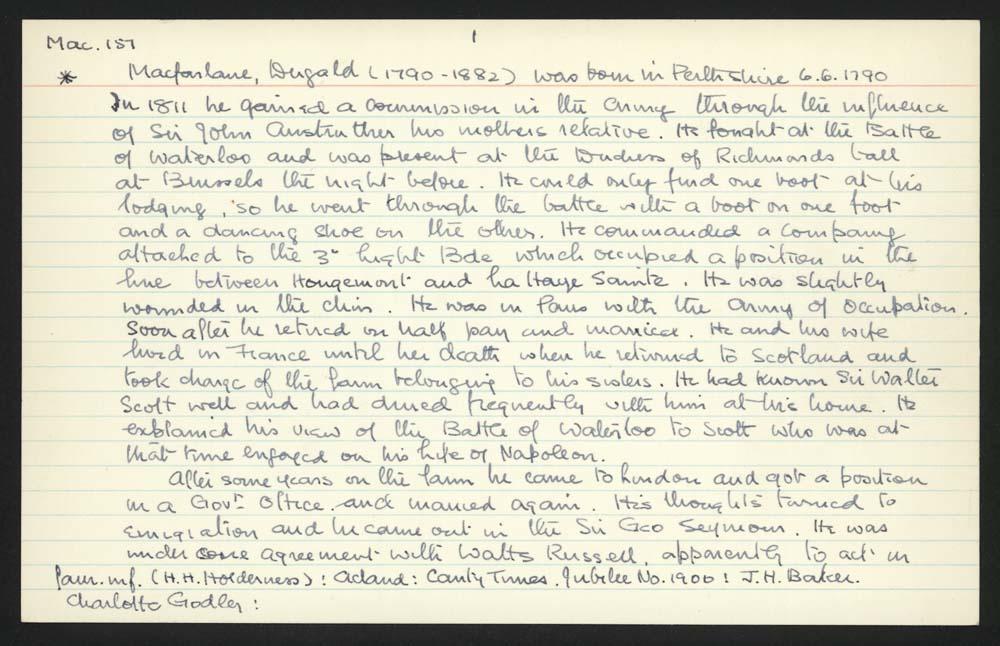 Mac. 157
1
* Macfarlane, Dugald (1790-1882) was born in Perthshire 6.6.1790
In 1811 he gained a commission in the army through the influence
of Sir John Anstruther his mothers relative. He fought at the Battle
of Waterloo and was present at the Duchess of Richmonds ball
at Brussels the night before. He could only find one boot at his
lodging, so he went through the battle with a boot on one foot
and a dancing shoe on the other. He commanded a company
attached to the 3rd Light Bde which occupied a position in the
line between Hougemont and La Haye Sainte. He was slightly
wounded in the chin. He was in Paris with the Army of Occupation.
Soon after he retired on half pay and married. He and his wife
lived in France until her death when he returned to Scotland and
took charge of the farm belonging to his sisters. He had known Sir Walter
Scott well and had dined frequently with him at his home. He
explained his view of the Battle of Waterloo to Scott who was at
that time engaged on his Life of Napoleon.
After some years on the farm he came to London and got a position
in a Govt Office and married again. His thoughts turned to
emigration and he came out in the Sir Geo Seymour. He was
under some agreement with Watts Russell, apparently to act in
Fam. inf. (H.H. Holderness): Acland: Canty Times. Jubilee No. 1900: J.H. Baker.
Charlotte Godley: